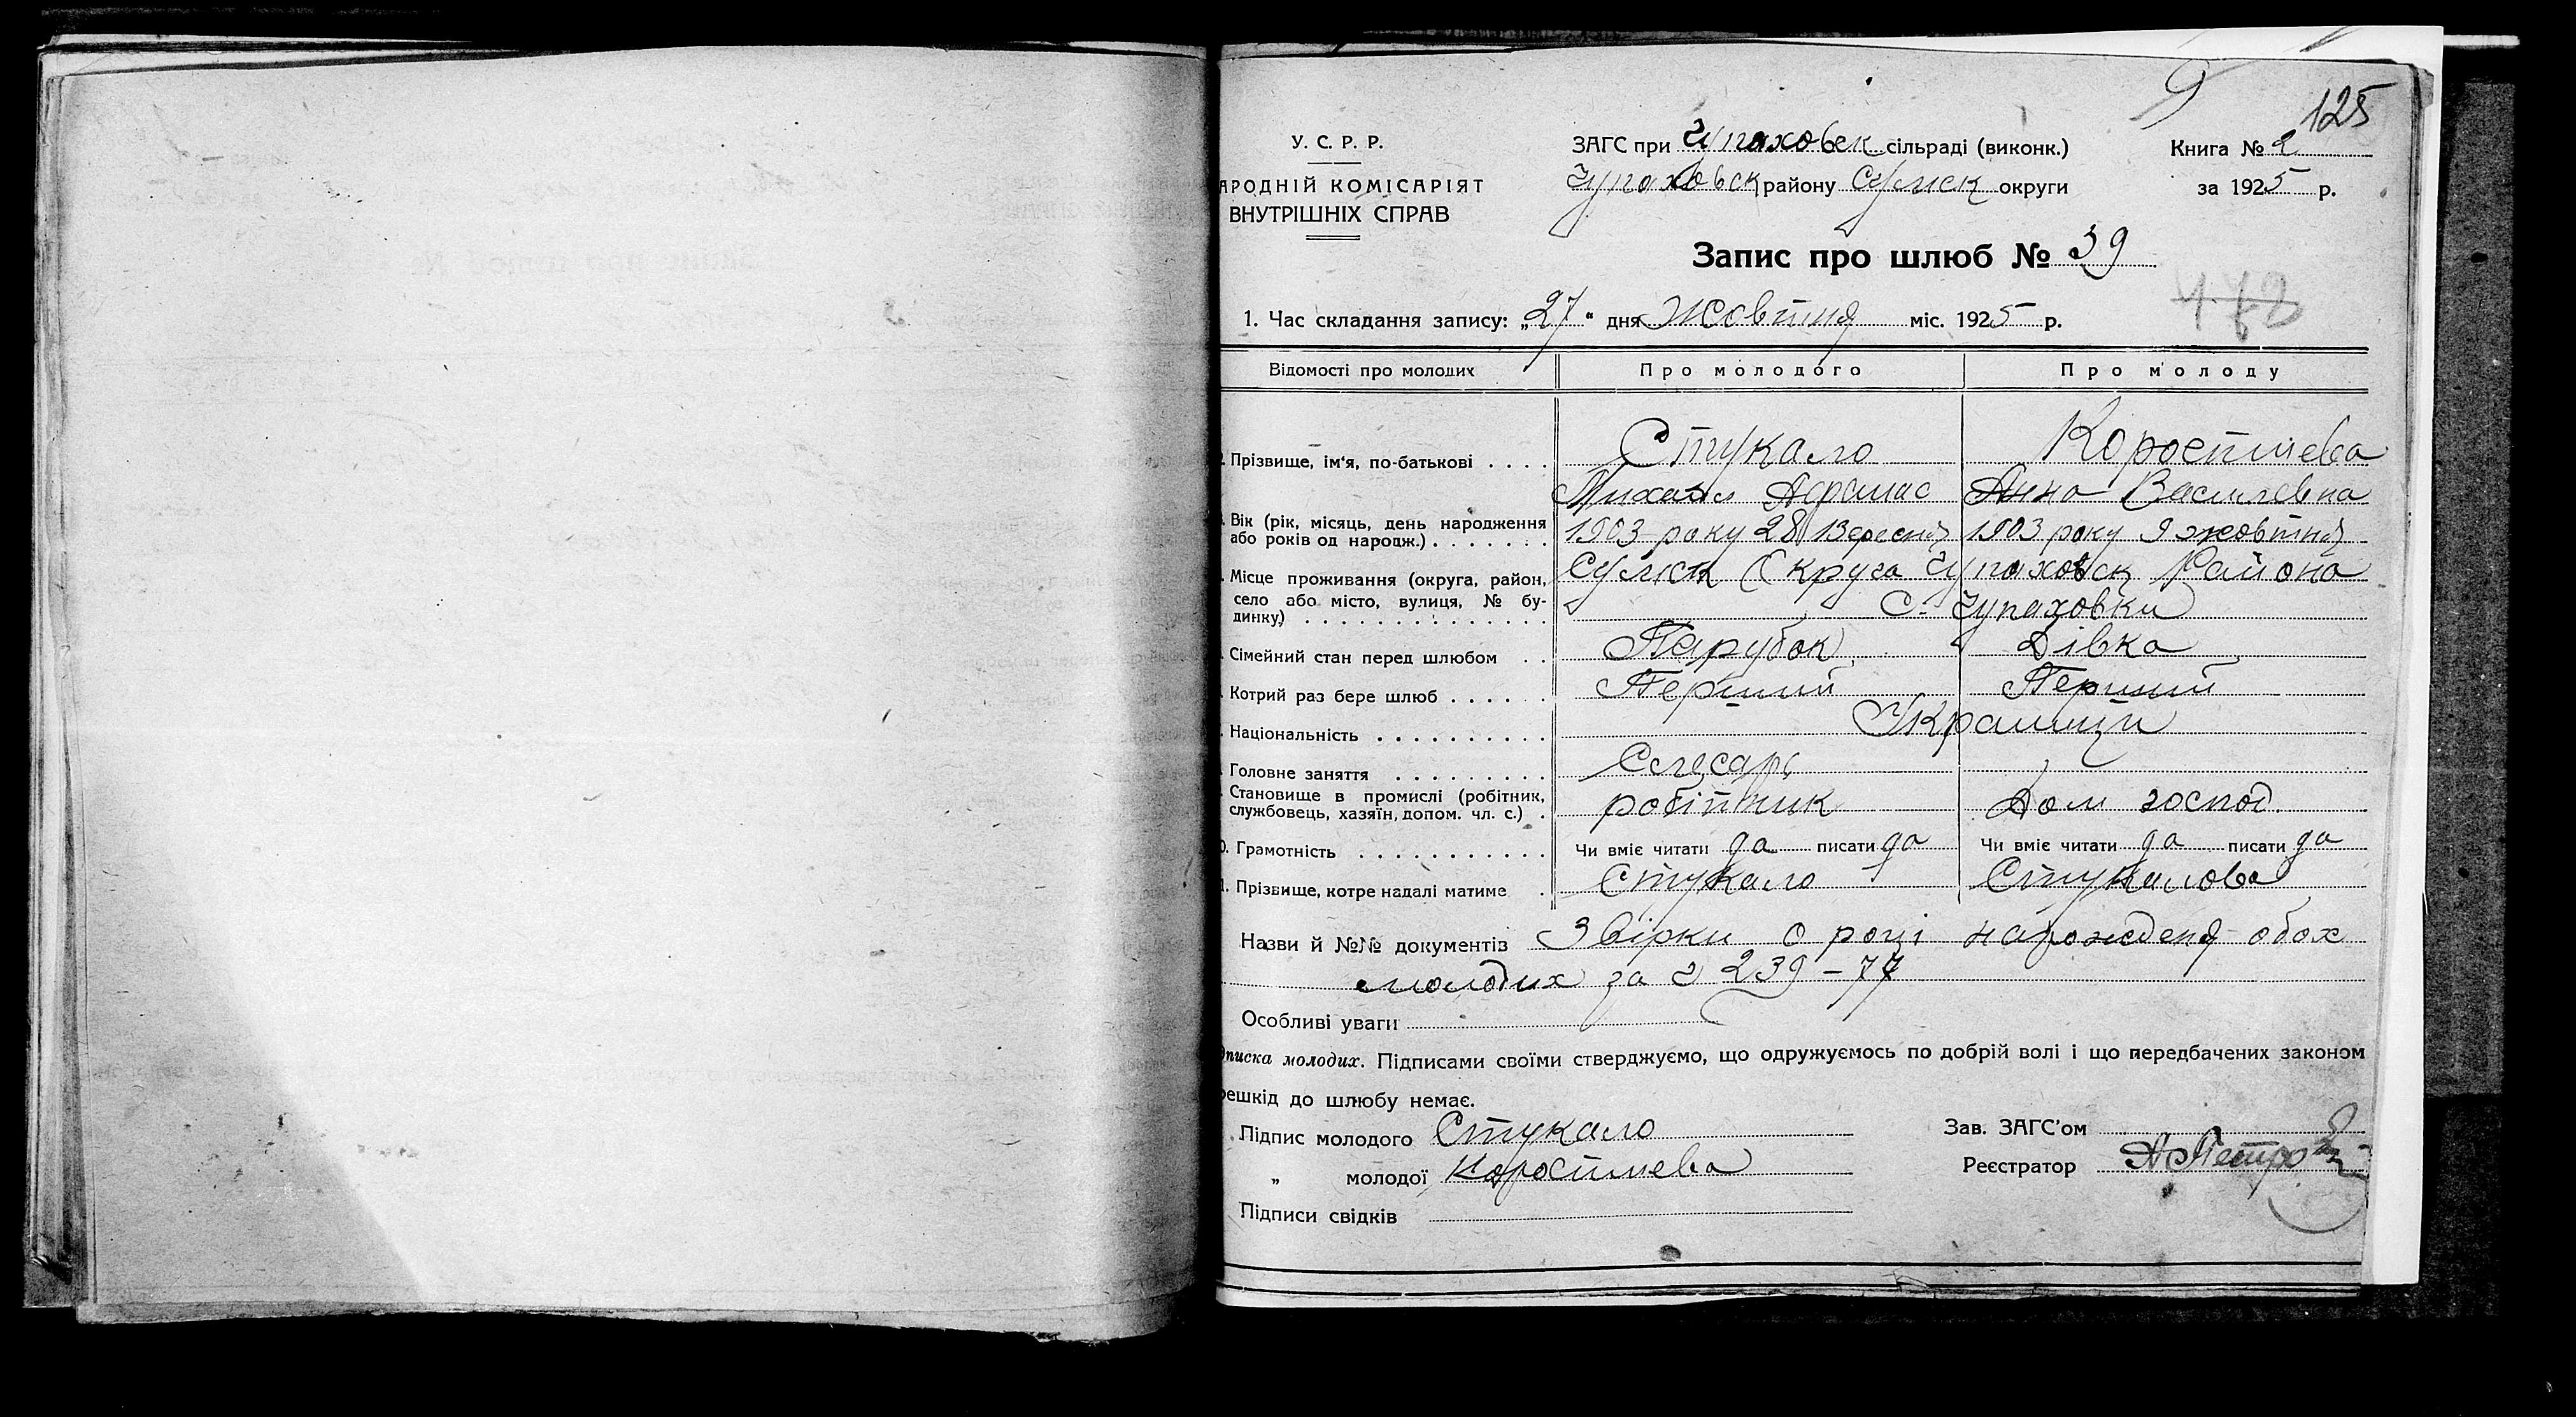 125
У. С. Р. Р.
АРОДНІЙ КОМІСАРІЯТ
ВНУТРІШНІХ СПРАВ
ЗАГС при Чупаховск сільраді (виконк.)
Чупаховск району Сумск округи
Книга № 2
за 1925 р.
Запис про шлюб № 39
1. Час складання запису: „27“ дня Жовтня міс. 1925 р.
Відомості про молодих Про молодого Про молоду
Прізвище, ім'я, по-батькові . . . . Стукало Коростилева
Михаил Афанас Анна Василевна
Вік (рік, місяць, день народження або років од народж.) . . . . . . . 1903 року 28 Вересня 1903 року 9 жовтня
Місце проживання (округа, район, Сумск Округа Чупаховск Района
село або місто, вулиця, № бу- С. Чупаховки
динку) . . . . . . . . . . . . . . .
Сімейний стан перед шлюбом . . Парубок Дівка
Котрий раз бере шлюб . . . . . . Перший Перший
Національність . . . . . . . . . . Українци
Головне заняття . . . . . . . . . Слесарь
Становище в промислі (робітник, службовець, хазяїн, допом. чл. с.) . робітник Дом господ.
Грамотність . . . . . . . . . . . Чи вміє читати да писати да Чи вміє читати да писати да
1. Прізвище, котре надалі матиме . Стукало Стукалова
Назви й №№ документів Звірки о році народженя обох
молодих за 239 – 77
Особливі уваги
писка молодих. Підписами своїми стверджуємо, що одружуємось по добрій волі і що передбачених законом
решкід до шлюбу немає.
Підпис молодого Стукало
„ молодої Коростилева
Підписи свідків
Зав. ЗАГС'ом
Реєстратор